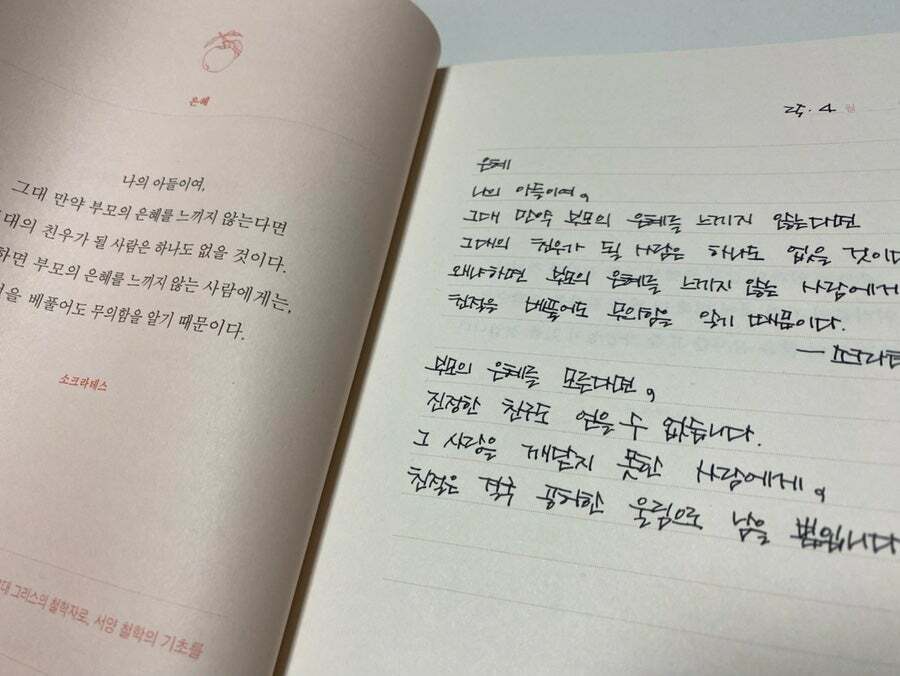 은혜
나의 아들이여,
그대 만약 부모의 은혜를 느끼지 않는다면
대의 친우가 될 사람은 하나도 없을 것이다.
하면 부모의 은혜를 느끼지 않는 사람에게는,
을 베풀어도 무의함을 알기 때문이다.
소크라테스
대 그리스의 철학자로, 서양 철학의 기초를
25. 4
은혜
나의 아들이여,
그대 만약 부모의 은혜를 느끼지 않는다면
그대의 친우가 될 사람은 하나도 없을 것이다
왜냐하면 부모의 은혜를 느끼지 않는 사람에게
친절을 베풀어도 무의함을 알기 때문이다.
— 소크라테
부모의 은혜를 모른다면,
진정한 친구도 얻을 수 없습니다.
그 사랑을 깨닫지 못한 사람에게,
친절은 결국 공허한 울림으로 남을 뿐입니다